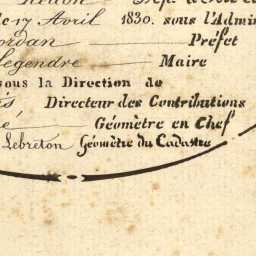 le 17 Avril 1830. sous l'Admin
Préfet
Legendre Maire
sous la Direction de
Directeur des Contributions
Géomètre en Chef
Lebreton Géomètre du Cadastre